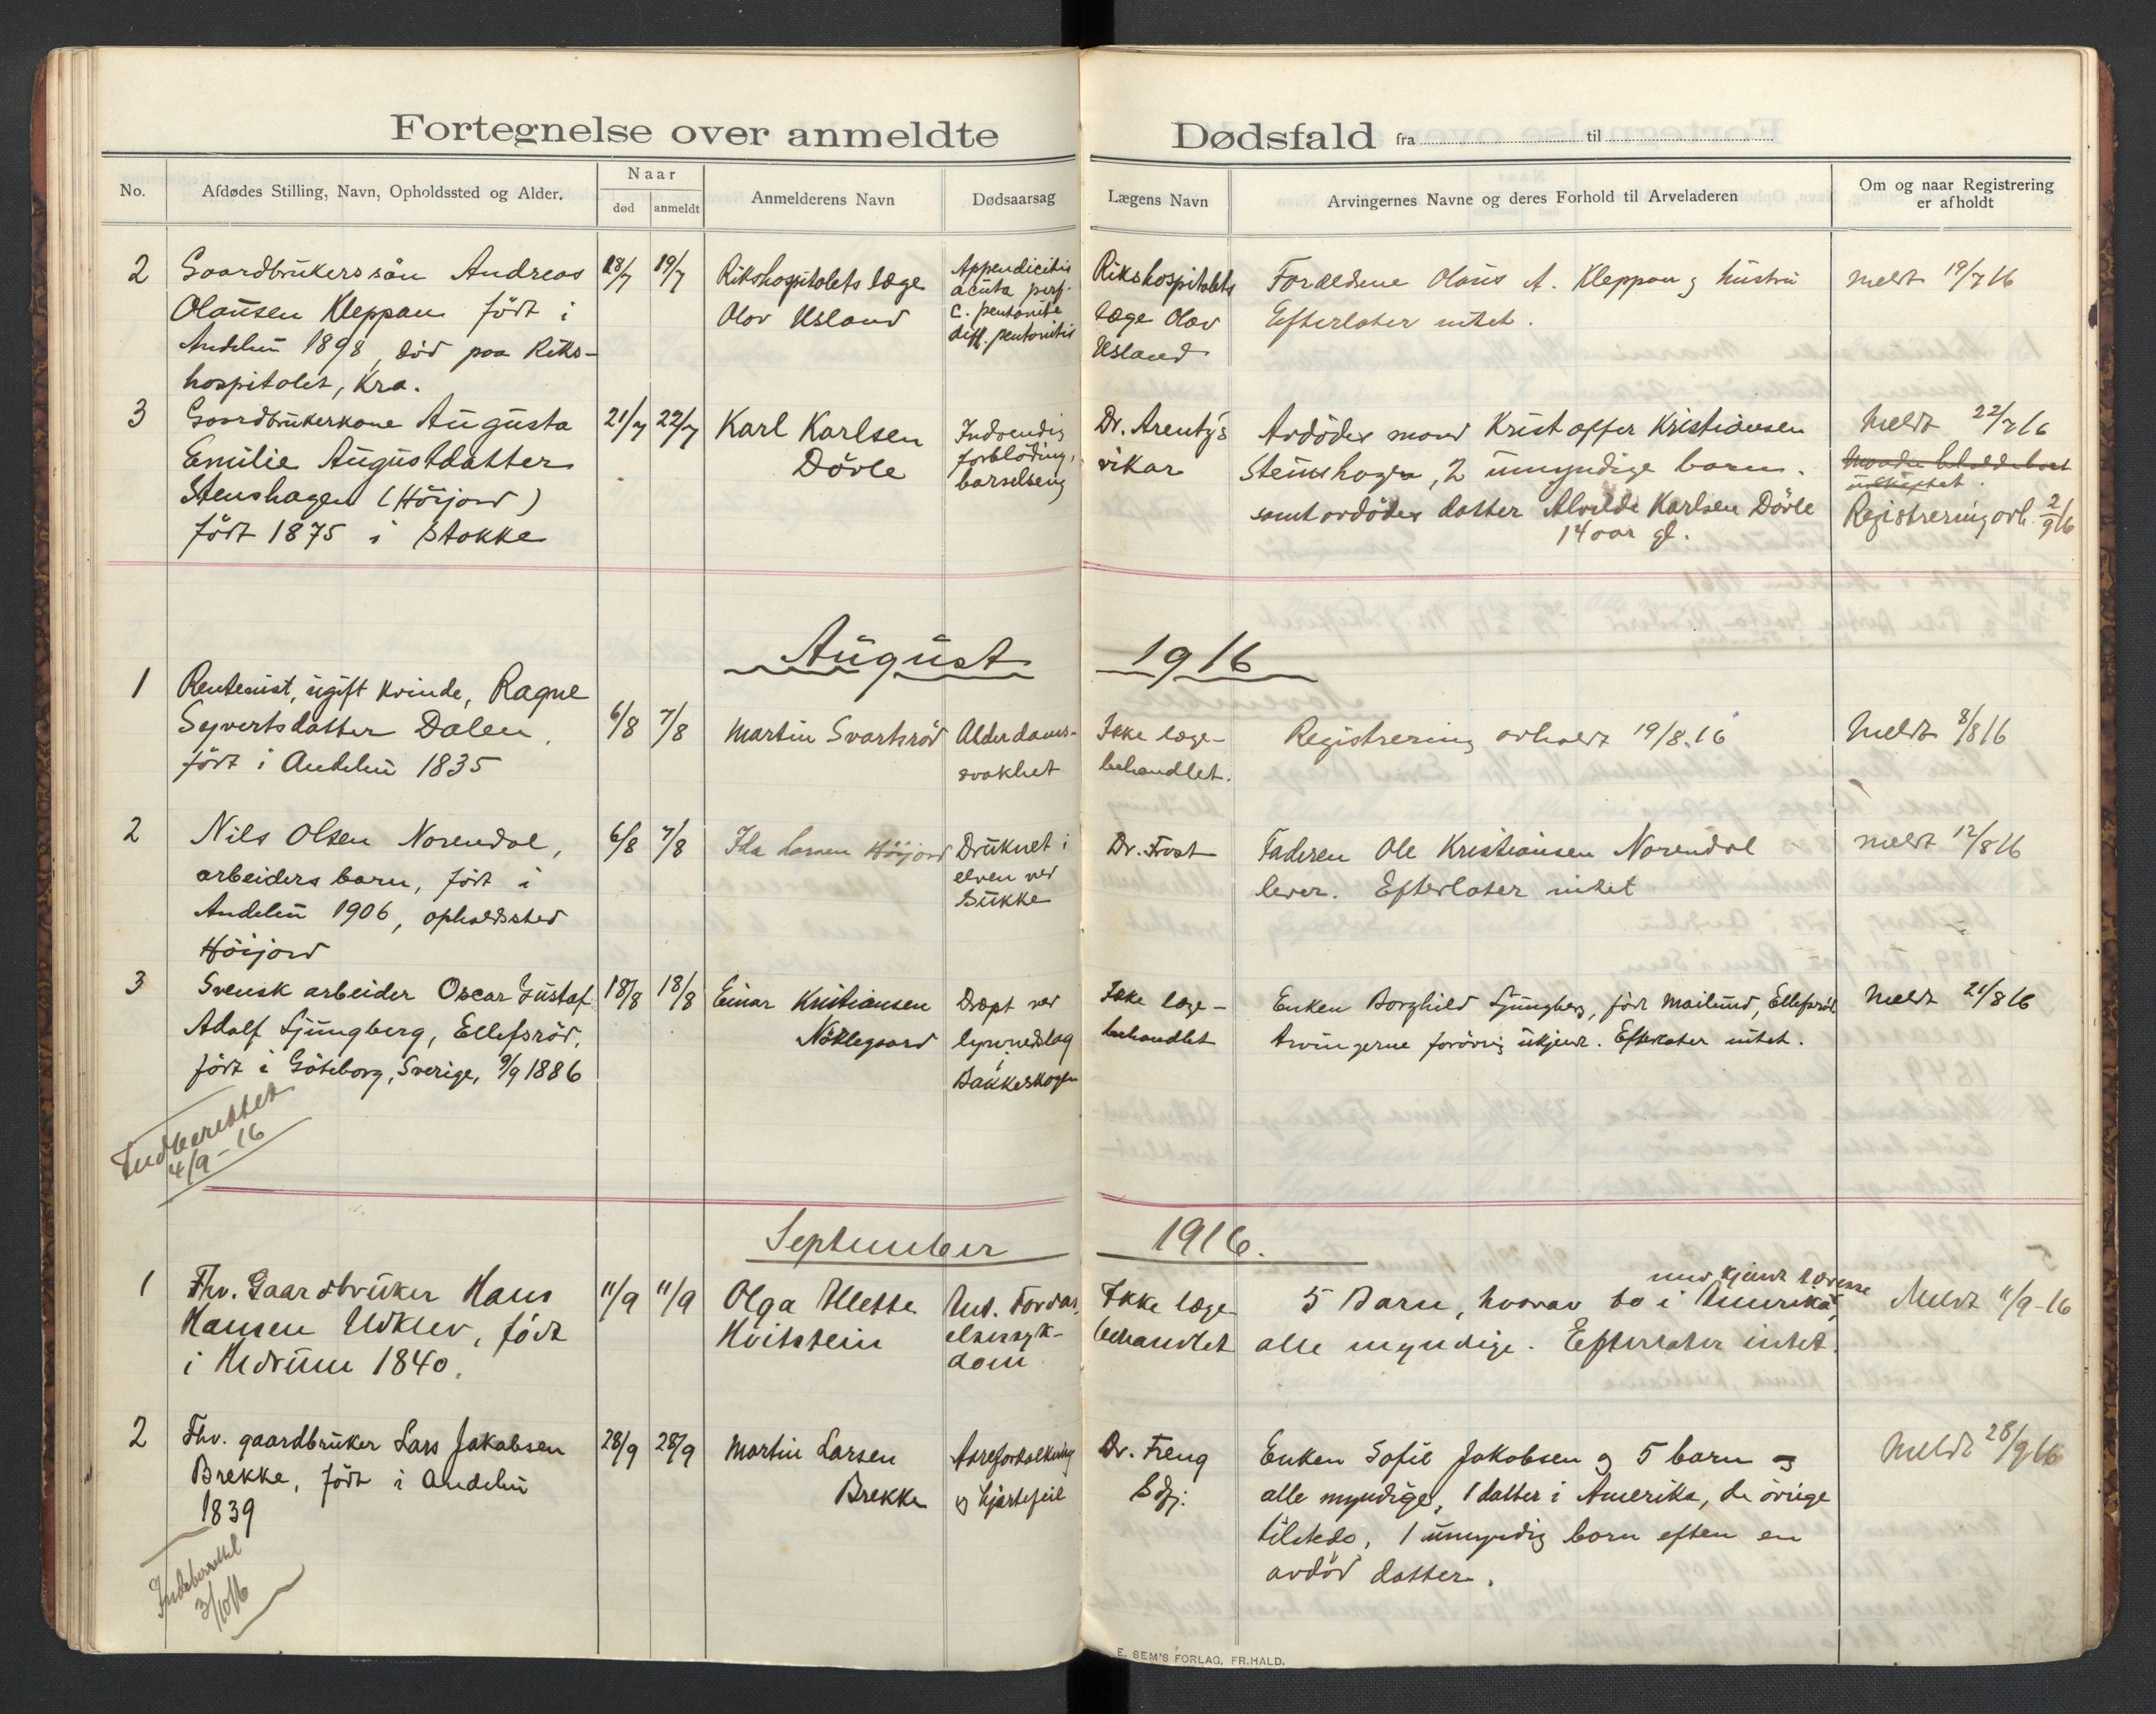 Fortegnelse over anmeldte Dødsfald fra til
No.
Afdødes Stilling, Navn, Opholdssted og Alder.
Naar
død
anmeldt
Anmelderens Navn
Dødsaarsag
Lægens Navn
Arvingernes Navne og deres Forhold til Arveladeren
Om og naar Registrering
er afholdt
2
Gaardbrukerssön Andreas
Olausen Kleppan född i
Andebu 1898, död paa Riks-
hospitalet, Kra.
18/7
19/7
Rikshospitalets læge
Olav Usland
Appendicitis
acuta perf.
c. peritonite
diff. peritonitis
Rikshospitalets
læge Olav
Usland
Foreldrene Olaus A. Kleppan og hustru
Efterlater intet.
meldt 19/7 16
3
Gaardbrukerkone Augusta
Emilie Augustdatter
Stenshagen (Höijord)
född 1875 i Stokke
21/7
22/7
Karl Karlsen
Dövle
Indvendig
forblödning,
barselseng
Dr. Arentz's
vikar
Avdödes mand Kristoffer Kristiansen
Stenshagen, 2 umyndige barn.
samt avdödes datter Alvilde Karlsen Dövle
14 aar gl.
Meldt 22/7 16
uskiftet.
Registrering avh. 2/9 16
August 1916
1
Rentenist, ugift kvinde, Ragne
Syvertsdatter Dalen,
född i Andebu 1835
6/8
7/8
Martin Svartsröd
Alderdoms-
svakhet
Ikke læge-
behandlet.
Registrering avholdt 19/8.16
Meldt 8/8 16
2
Nils Olsen Norendal,
arbeiders barn, född i
Andebu 1906, opholdssted
Höijord
6/8
7/8
Ida Larsen Höijord
Druknet i
elven ved
Gukke
Dr. Frost
Faderen Ole Kristiansen Norendal
lever. Efterlater intet
meldt 12/8 16
3
Svensk arbeider Oscar Gustaf
Adolf Ljungberg, Ellefsröd,
född i Göteborg, Sverige, 9/9 1886
18/8
18/8
Einar Kristiansen
Nöklegaard
Dræpt ved
lynnedslag
i
Bakkeskogen
Ikke læge-
behandlet
Enken Borghild Ljungberg, född Mailund, Ellefsröd.
Arvingerne forövrig ukjendt. Efterlater intet.
Meldt 21/8 16
Indberettet
4/9-16
September 1916.
1
Fhv. Gaardbruker Hans
Hansen Udklev, född
i Hedrum 1840.
11/9
11/9
Olga Illette
Hvitstein
Ant. Fordöi-
elsessyk-
dom
Ikke læge
behandlet
med kjendt adresse
5 Barn, hvorav to i Amerika,
alle myndige. Efterlater intet.
Meldt 11/9-16
2
Fhv. gaardbruker Lars Jakobsen
Brekke, född i Andebu
1839
28/9
28/9
Martin Larsen
Brekke
Aareforkalkning
og hjertefeil
Dr. Freng
Sdfj.
Enken Sofie Jakobsen og 5 barn
alle myndige, 1 datter i Amerika, de övrige
tilstede, 1 umyndig barn efter en
avdöd datter.
Meldt 28/9 16
Indberettet
3/10 16
E. SEM'S FORLAG, FR.HALD.